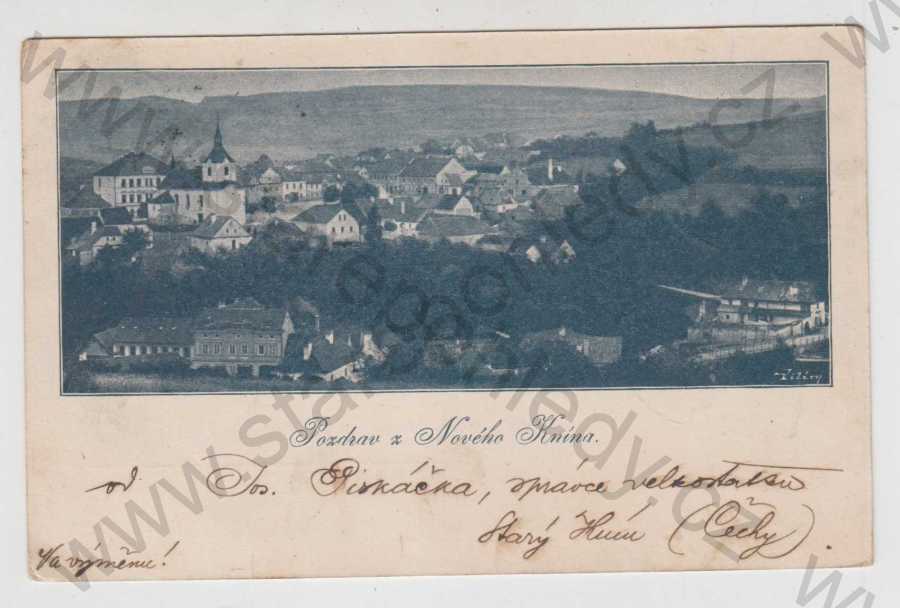 Pozdrav z Nového Knína.
od Jos. Piskáčka, správce velkostatku
Starý Hm (Čechy)
Na výměnu!
www.starepohledy.cz